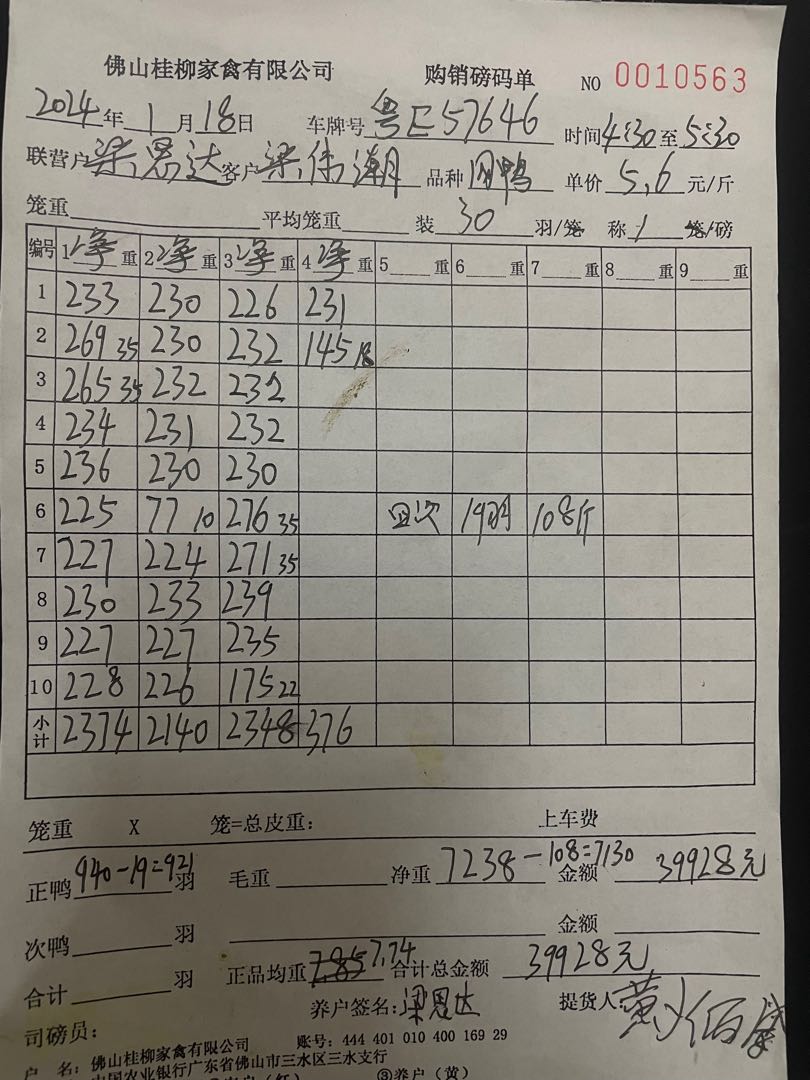 佛山桂柳家禽有限公司 购销磅码单 NO 0010563
2024年 1 月 18 日 车牌号 粤E57646 时间 4:30 至 5:30
联营户 梁恩达 客户 梁伟潮 品种 肉鸭 单价 5,6 元/斤
笼重 平均笼重 装 30 羽/笼 称 1 笼/磅
编号 1 净 重 2 净 重 3 净 重 4 净 重 5 重 6 重 7 重 8 重 9 重
1 233 230 226 231
2 269 35 230 232 145 18
3 265 35 232 232
4 234 231 232
5 236 230 230
6 225 77 10 276 35 次 19羽 108斤
7 227 224 271 35
8 230 233 239
9 227 227 235
10 228 226 175 22
小计 2374 2140 2348 376
笼重 X 笼=总皮重: 上车费
正鸭 940-19=921 羽 毛重 净重 7238-108=7130 金额 39928元
次鸭 羽 金额
合计 羽 正品均重 7.85 7.74 合计总金额 39928元
养户签名: 梁恩达 提货人 黄
司磅员:
户 名: 佛山桂柳家禽有限公司 账号: 444 401 010 400 169 29
中国农业银行广东省佛山市三水区三水支行
③养户（黄）